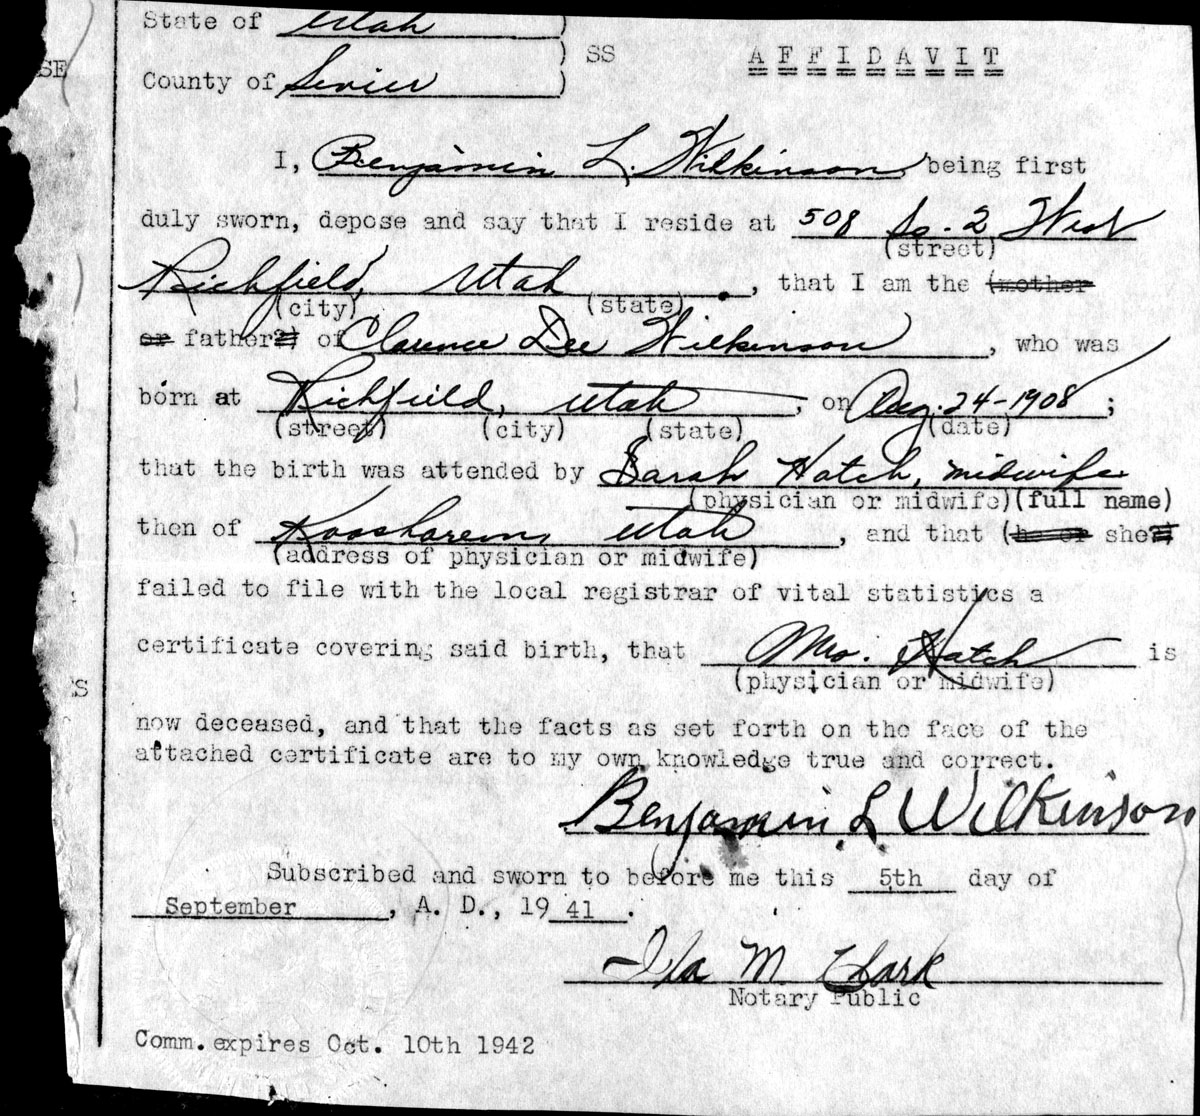 State of Utah )
) SS AFFIDAVIT
County of Sevier )
SE
I, Benjamin L. Wilkinson being first
duly sworn, depose and say that I reside at 508 So. 2 West
(street)
Richfield, Utah, that I am the (mother
(city) (state)
or father) of Clarence Dee Wilkinson, who was
born at Richfield, Utah, on Aug. 24-1908;
(street) (city) (state) (date)
that the birth was attended by Sarah Hatch, midwife
(physician or midwife)(full name)
then of Koosharem, Utah, and that (he or she)
(address of physician or midwife)
failed to file with the local registrar of vital statistics a
certificate covering said birth, that Mrs. Hatch is
(physician or midwife)
S
now deceased, and that the facts as set forth on the face of the
attached certificate are to my own knowledge true and correct.
Benjamin L Wilkinson
Subscribed and sworn to before me this 5th day of
September, A. D., 19 41.
Ila M. Clark
Notary Public
Comm. expires Oct. 10th 1942